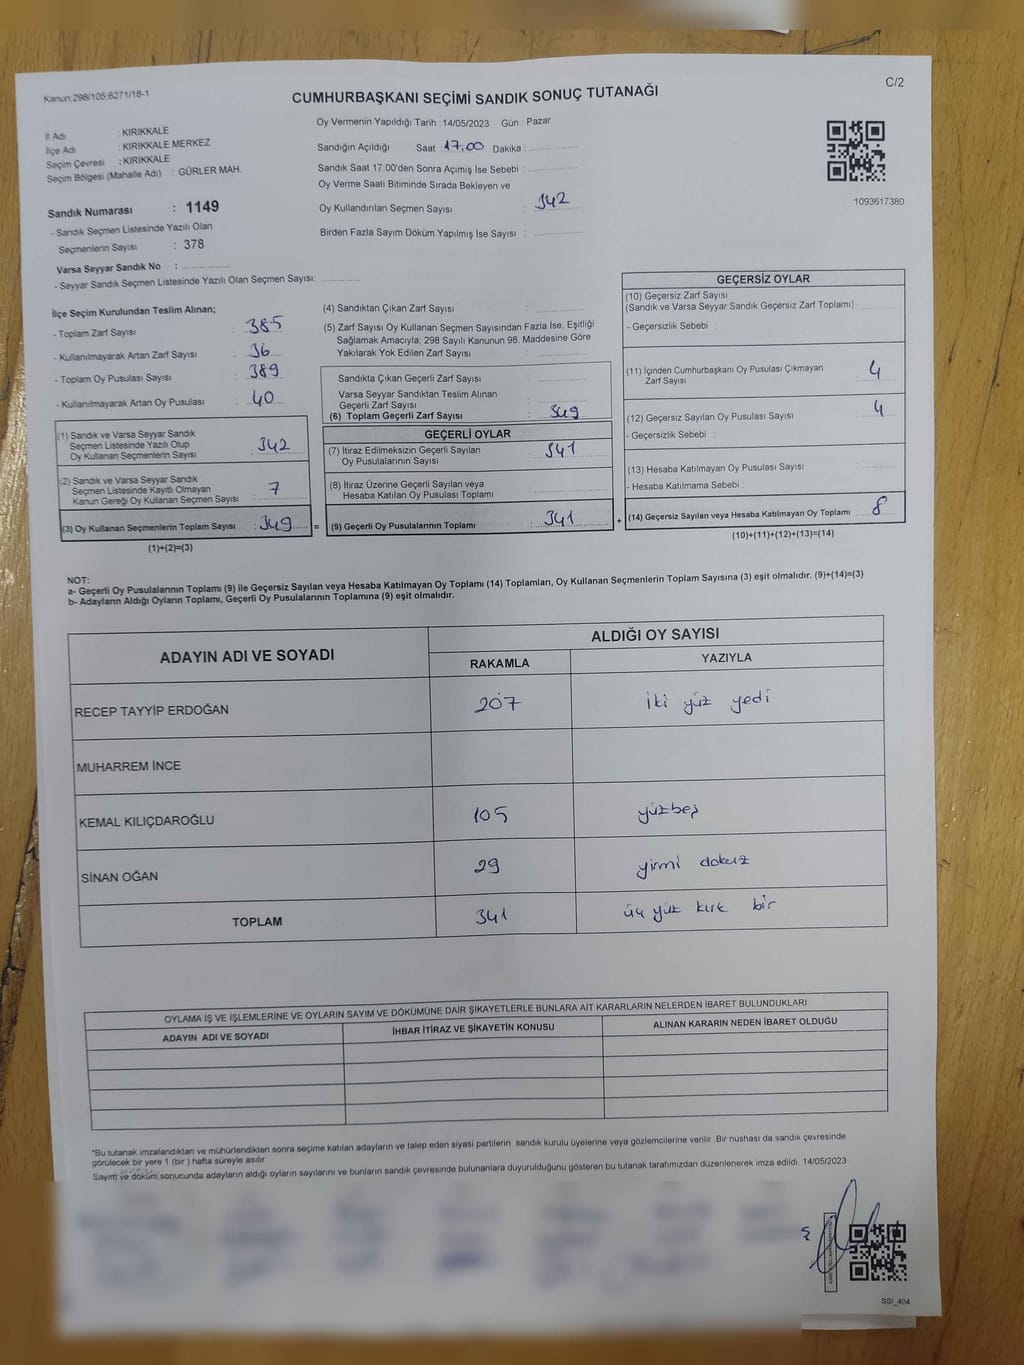 Kanun.298/105;6271/18-1
C/2
CUMHURBAŞKANI SEÇİMİ SANDIK SONUÇ TUTANAĞI
İl Adı : KIRIKKALE
İlçe Adı : KIRIKKALE MERKEZ
Seçim Çevresi : KIRIKKALE
Seçim Bölgesi (Mahalle Adı) : GÜRLER MAH.
Sandık Numarası : 1149
- Sandık Seçmen Listesinde Yazılı Olan
Seçmenlerin Sayısı : 378
Varsa Seyyar Sandık No :
- Seyyar Sandık Seçmen Listesinde Yazılı Olan Seçmen Sayısı:
Oy Vermenin Yapıldığı Tarih :14/05/2023 Gün : Pazar
Sandığın Açıldığı Saat 17,00 Dakika :
Sandık Saat 17:00'den Sonra Açımış İse Sebebi :
Oy Verme Saati Bitiminde Sırada Bekleyen ve
Oy Kullandırılan Seçmen Sayısı : 342
Birden Fazla Sayım Döküm Yapılmış İse Sayısı :
1093617380
İlçe Seçim Kurulundan Teslim Alınan;
- Toplam Zarf Sayısı : 385
- Kullanılmayarak Artan Zarf Sayısı : 36
- Toplam Oy Pusulası Sayısı : 389
- Kullanılmayarak Artan Oy Pusulası : 40
(1) Sandık ve Varsa Seyyar Sandık
Seçmen Listesinde Yazılı Olup
Oy Kullanan Seçmenlerin Sayısı : 342
(2) Sandık ve Varsa Seyyar Sandık
Seçmen Listesinde Kayıtlı Olmayan
Kanun Gereği Oy Kullanan Seçmen Sayısı : 7
(3) Oy Kullanan Seçmenlerin Toplam Sayısı : 349 =
(1)+(2)=(3)
(4) Sandıktan Çıkan Zarf Sayısı :
(5) Zarf Sayısı Oy Kullanan Seçmen Sayısından Fazla İse, Eşitliği
Sağlamak Amacıyla; 298 Sayılı Kanunun 98. Maddesine Göre
Yakılarak Yok Edilen Zarf Sayısı :
Sandıkta Çıkan Geçerli Zarf Sayısı :
Varsa Seyyar Sandıktan Teslim Alınan
Geçerli Zarf Sayısı :
(6) Toplam Geçerli Zarf Sayısı : 349
GEÇERLİ OYLAR
(7) İtiraz Edilmeksizin Geçerli Sayılan
Oy Pusulalarının Sayısı : 341
(8) İtiraz Üzerine Geçerli Sayılan veya
Hesaba Katılan Oy Pusulası Toplamı :
(9) Geçerli Oy Pusulalarının Toplamı : 341 +
GEÇERSİZ OYLAR
(10) Geçersiz Zarf Sayısı
(Sandık ve Varsa Seyyar Sandık Geçersiz Zarf Toplamı)
- Geçersizlik Sebebi :
(11) İçinden Cumhurbaşkanı Oy Pusulası Çıkmayan
Zarf Sayısı 4
(12) Geçersiz Sayılan Oy Pusulası Sayısı 4
- Geçersizlik Sebebi :
(13) Hesaba Katılmayan Oy Pusulası Sayısı
- Hesaba Katılmama Sebebi :
(14) Geçersiz Sayılan veya Hesaba Katılmayan Oy Toplamı : 8
(10)+(11)+(12)+(13)=(14)
NOT:
a- Geçerli Oy Pusulalarının Toplamı (9) ile Geçersiz Sayılan veya Hesaba Katılmayan Oy Toplamı (14) Toplamları, Oy Kullanan Seçmenlerin Toplam Sayısına (3) eşit olmalıdır. (9)+(14)=(3)
b- Adayların Aldığı Oyların Toplamı, Geçerli Oy Pusulalarının Toplamına (9) eşit olmalıdır.
ADAYIN ADI VE SOYADI
ALDIĞI OY SAYISI
RAKAMLA YAZIYLA
RECEP TAYYİP ERDOĞAN 207 iki yüz yedi
MUHARREM İNCE
KEMAL KILIÇDAROĞLU 105 yüzbeş
SİNAN OĞAN 29 yirmi dokuz
TOPLAM 341 üç yüz kırk bir
OYLAMA İŞ VE İŞLEMLERİNE VE OYLARIN SAYIM VE DÖKÜMÜNE DAİR ŞİKAYETLERLE BUNLARA AİT KARARLARIN NELERDEN İBARET BULUNDUKLARI
ADAYIN ADI VE SOYADI İHBAR İTİRAZ VE ŞİKAYETİN KONUSU ALINAN KARARIN NEDEN İBARET OLDUĞU
*Bu tutanak imzalandıktan ve mühürlendikten sonra seçime katılan adayların ve talep eden siyasi partilerin sandık kurulu üyelerine veya gözlemcilerine verilir. Bir nushası da sandık çevresinde
görülecek bir yere 1 (bir ) hafta süreyle asılır.
Sayım ve döküm sonucunda adayların aldığı oyların sayılarını ve bunların sandık çevresinde bulunanlara duyurulduğunu gösteren bu tutanak tarafımızdan düzenlenerek imza edildi. 14/05/2023
SSI_404